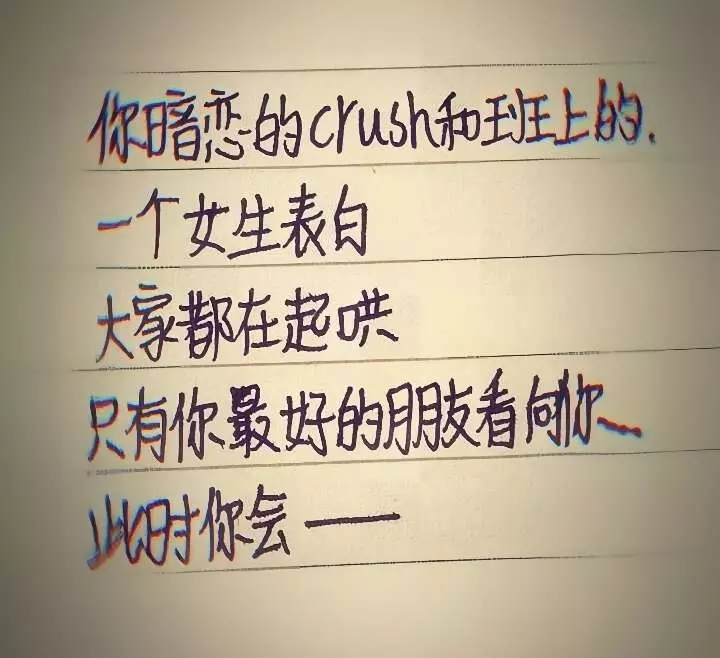 你暗恋的crush和班上的.
一个女生表白
大家都在起哄
只有你最好的朋友看向你
此时你会——